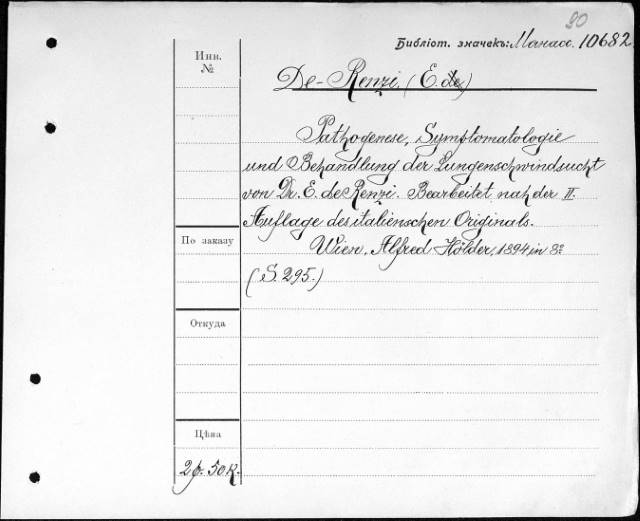 90
Библіот. значекъ: Манасс. 10682.
Инв.
№
De-Renzi. (E. de)
Pathogenese, Symptomatologie
und Behandlung der Lungenschwindsucht
von Dr. E. de Renzi. Bearbeitet nah der II.
Auflage des italienschen Originals.
По заказу
Wien. Alfred Hölder, 1894, in 8º
(S. 295.)
Откуда
Цѣна
2 р. 50 к.